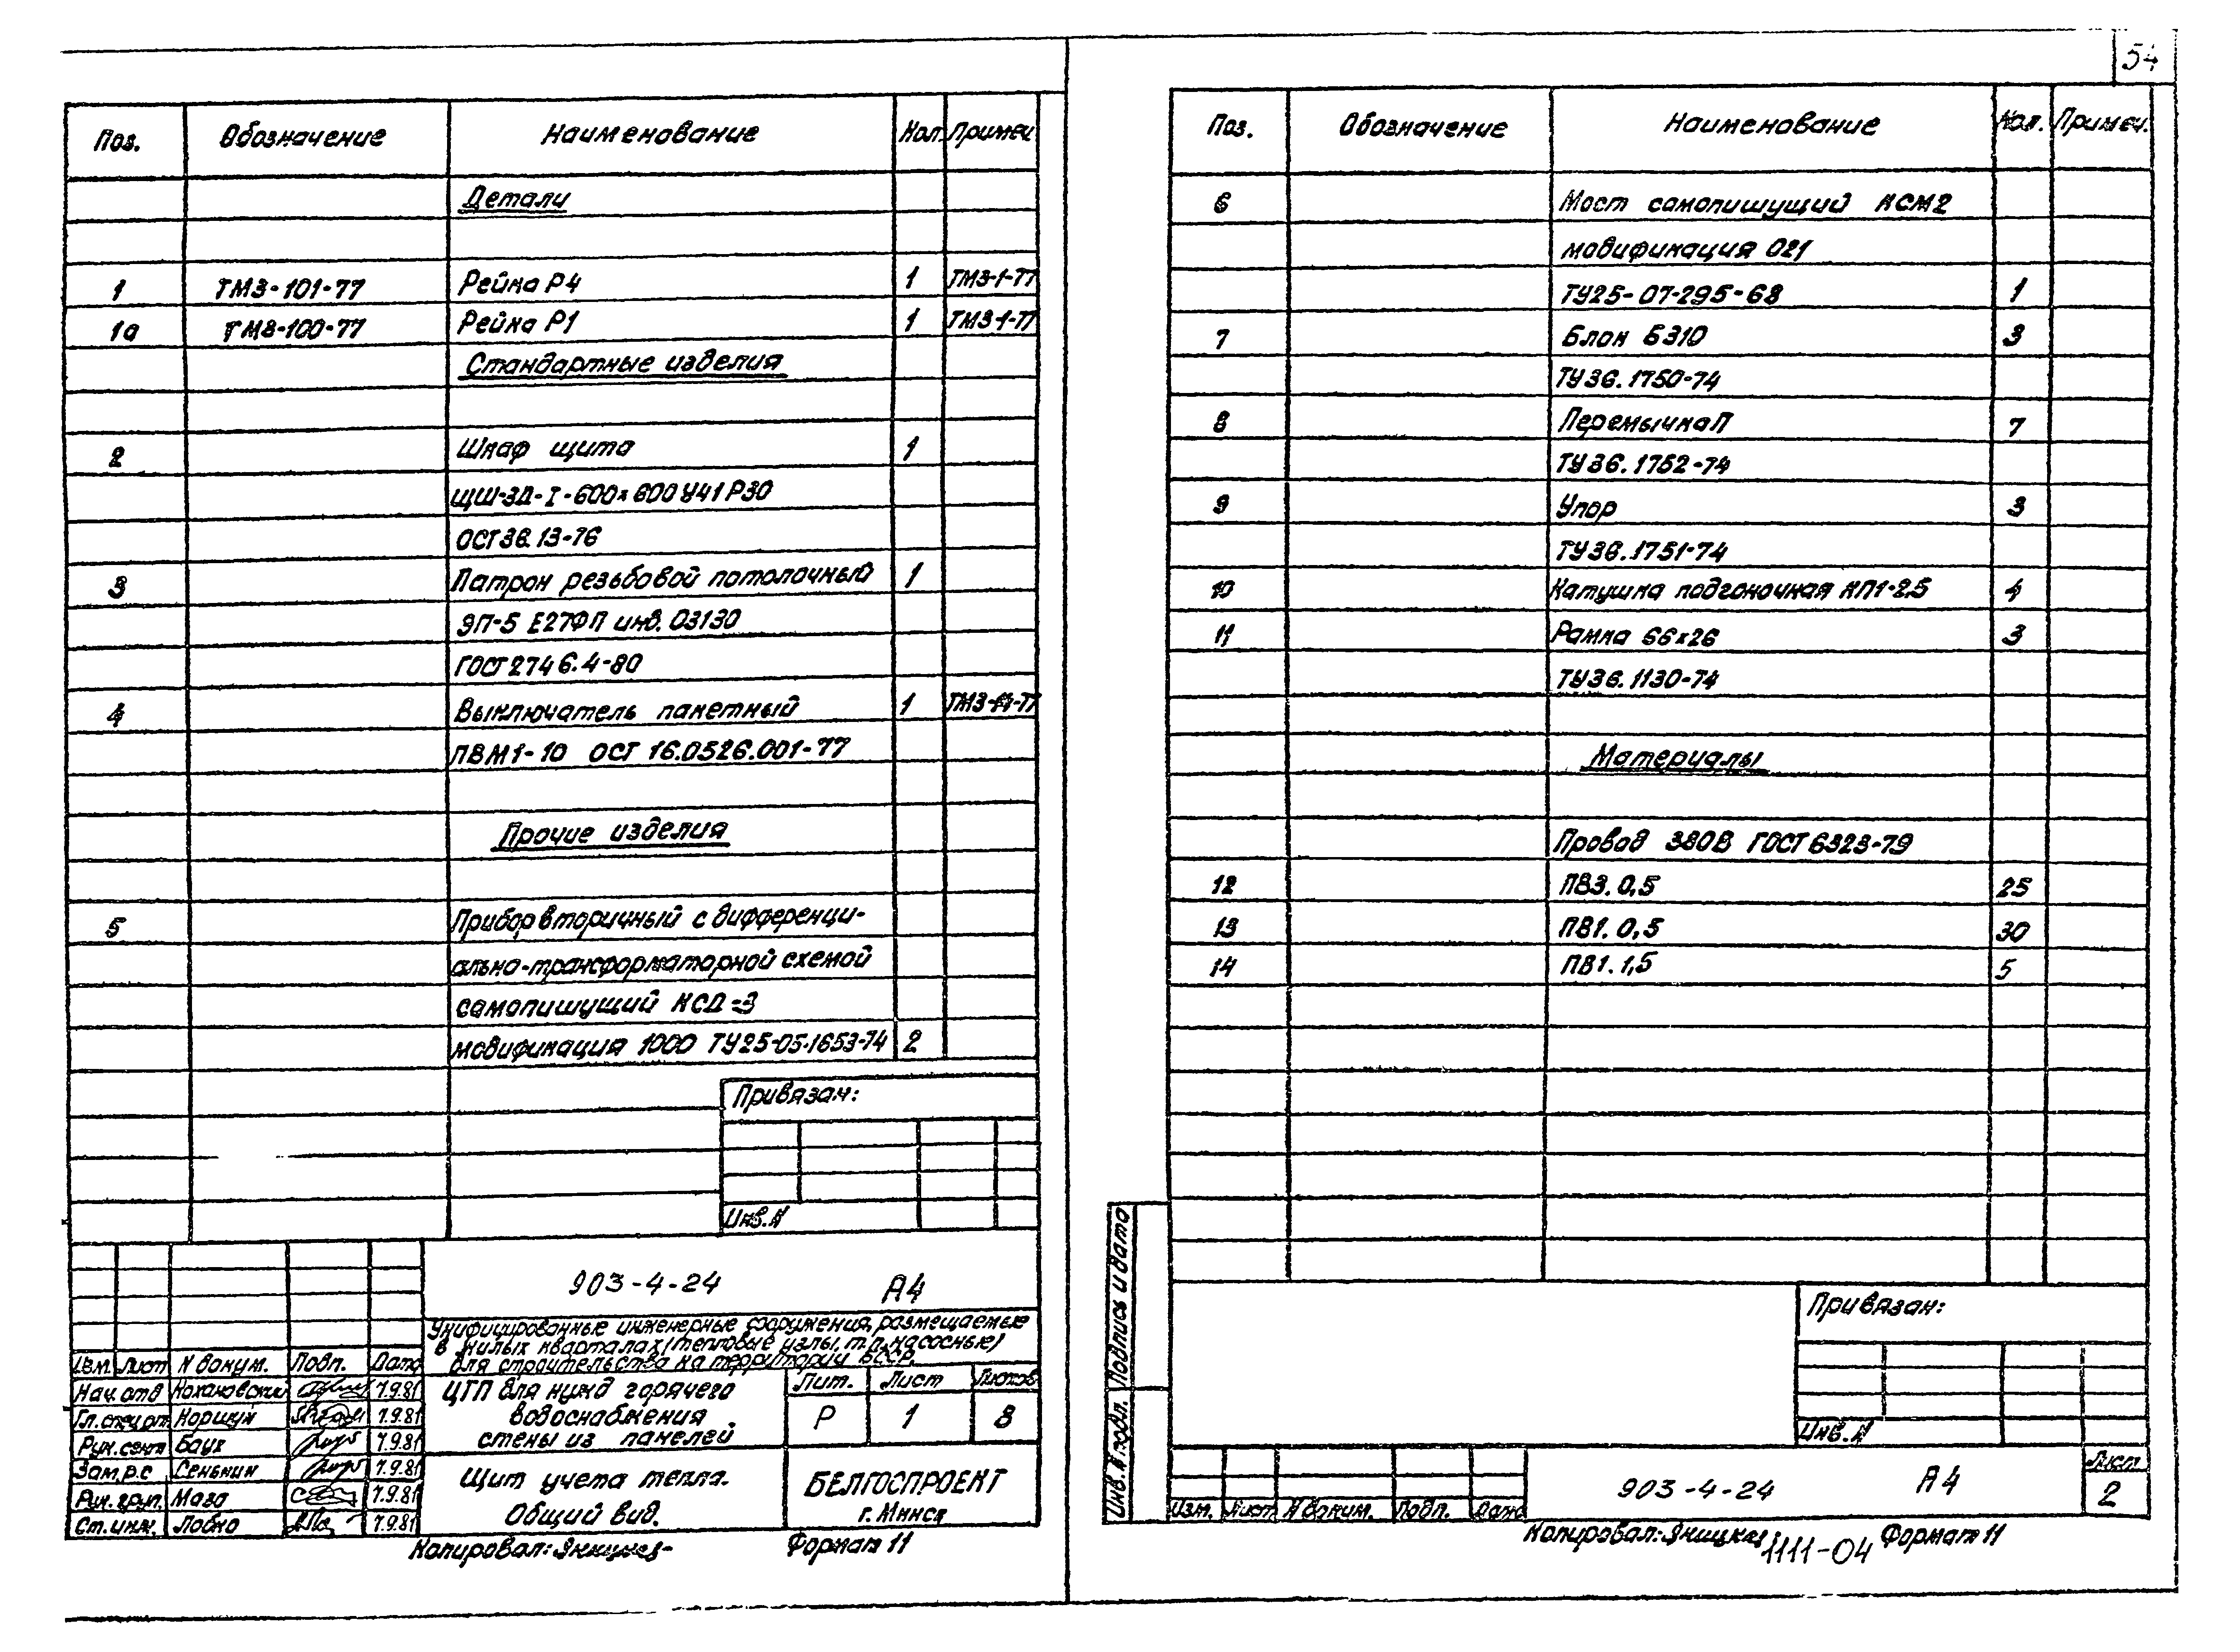 54
Поз. Обозначение Наименование Кол. Примеч
Детали
1 ТМ3-101-77 Рейка Р4 1 ТМ3-1-77
1а ТМ3-100-77 Рейка Р1 1 ТМ3-1-77
Стандартные изделия
2 Шкаф щита 1
ЩШ-ЗД-I-600х600 У41Р30
ОСТ36.13-76
3 Патрон резьбовой потолочный 1
ЭП-5 Е27ФП инв. 03130
ГОСТ2746.4-80
4 Выключатель пакетный 1
ПВМ1-10 ОСТ 16.0526.001-77
Прочие изделия
5 Прибор вторичный с дифференци-
ально-трансформаторной схемой
самопишущий КСД-3
модификация 1000 ТУ25-05.1653-74 2
Привязан:
Инв.N
903-4-24 А4
Унифицированные инженерные сооружения, размещаемые
в жилых кварталах (тепловые узлы, т.п. насосные)
для строительства на территории БССР.
Изм. Лист N докум. Подп. Дата
Нач. отд Кохановский 7.9.81
Гл.спец.от Коршун 7.9.81
Рук. сект Баух 7.9.81
Зам.р.с Сенькин 7.9.81
Рук. груп. Маза 7.9.81
Ст.инж. Лобко 7.9.81
ЦТП для нужд горячего
водоснабжения
стены из панелей
Лит. Лист Листов
Р 1 8
Щит учета тепла.
Общий вид.
БЕЛГОСПРОЕКТ
г. Минск
Копировал: Формат 11
Поз. Обозначение Наименование Кол. Примеч.
6 Мост самопишущий КСМ2
модификация 021
ТУ25-07-295-68 1
7 Блок Б310 3
ТУ36.1750-74
8 Перемычка П 7
ТУ36.1752-74
9 Упор 3
ТУ36.1751-74
10 Катушка подгоночная КП1-2,5 4
11 Рамка 66х26 3
ТУ36.1130-74
Материалы
Провод 380В ГОСТ6323-79
12 ПВ3. 0,5 25
13 ПВ1. 0,5 30
14 ПВ1. 1,5 5
Привязан:
Инв.N
Инв. N подл. Подпись и дата
Изм. Лист N докум. Подп. Дата
903-4-24 А4
Лист
2
Копировал: 1111-04 Формат 11